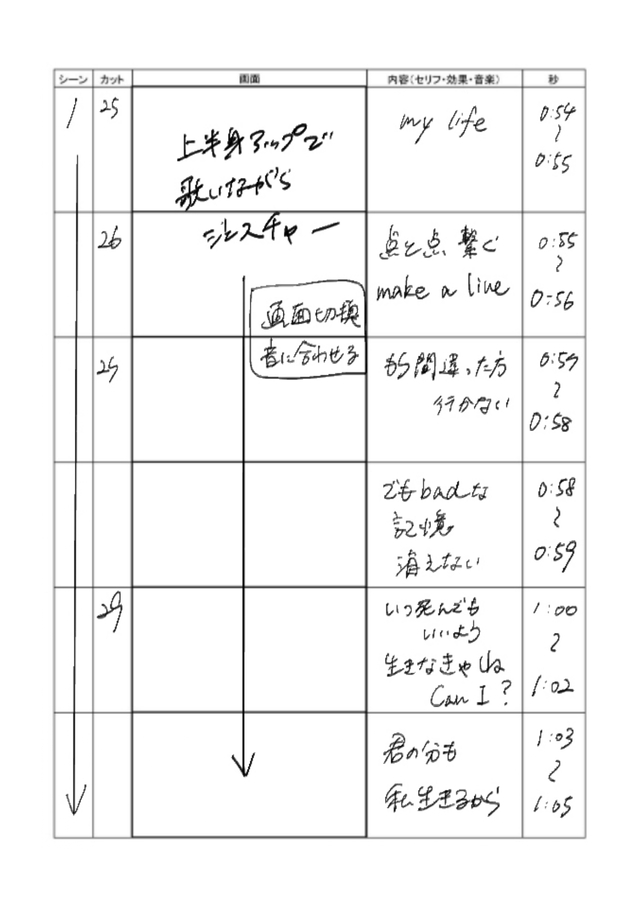 シーン カット 画面 内容(セリフ・効果・音楽) 秒
1 25 上半身アップで my life 0:54
歌いながら 〜
0:55
ジェスチャー
26 点と点 繋ぐ 0:55
make a line 〜
0:56
画面切換
音に合わせる
もう間違った方 0:57
行かない 〜
0:58
でもbadな 0:58
記憶 〜
消えない 0:59
29 いつ死んでも 1:00
いいよう 〜
生きなきゃね 1:02
Can I?
君の分も 1:03
〜
私生きるから 1:05